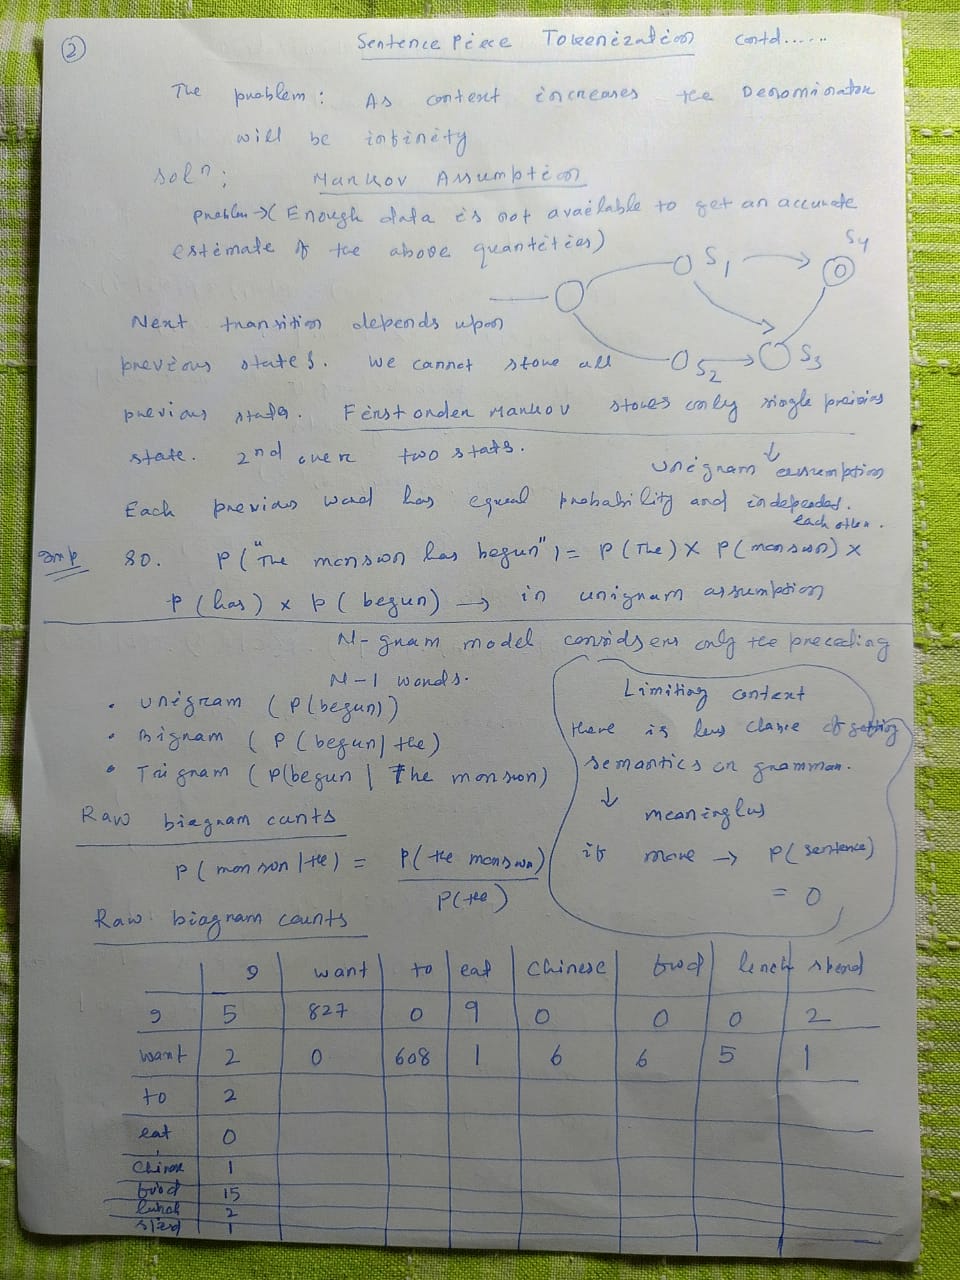 2
Sentence Piece Tokenization contd.....
The problem: As context increases the Denominator
will be infinity
soln: Markov Assumption
problem → (Enough data is not available to get an accurate
estimate of the above quantities)
S1 S4
S2 S3
Next transition depends upon
previous states. We cannot store all
previous states. First order Markov stores only single previous
state. 2nd order two stats.
unigram assumption
Each previous word has equal probability and independed.
each other.
Imp so. P("The monsoon has begun") = P(The) x P(monsoon) x
P(has) x P(begun) → in unigram assumption
N-gram model considers only the preceding
N-1 words.
• Unigram (P(begun))
• Bigram (P(begun|the)
• Trigram (P(begun | The monsoon)
Limiting context
there is less chance of getting
semantics or grammar.
↓ meaningless
if more → P(sentence)
= 0
Raw biagram counts
P(monsoon|the) = P(the monsoon)
P(the)
Raw biagram counts
I want to eat Chinese food lunch spend
I 5 827 0 9 0 0 0 2
want 2 0 608 1 6 6 5 1
to 2
eat 0
Chinese 1
food 15
lunch 2
spend 1